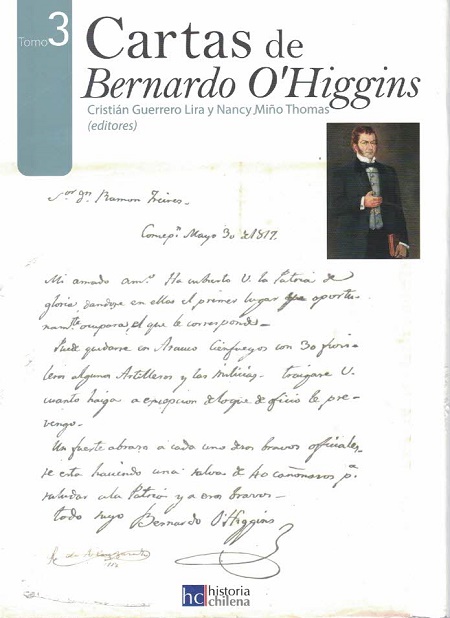 Tomo 3
Cartas de
Bernardo O'Higgins
Cristián Guerrero Lira y Nancy Miño Thomas
(editores)
Sor Gn Ramon Freires.
Concepn Mayo 30 de 1817.
Mi amado amo. Ha cubierto V. la Patria de
gloria, dandose en ellas el primer lugar que oportu-
namte ocupara, el que le corresponde.
Puede quedarse con Arauco Cienfuegos con 30 fusi-
leros algunos Artilleros y las milicias. traigase V.
cuanto haiga a excepcion de loqe de oficio le pre-
vengo.
Un fuerte abraso a cada uno de esos bravos oficiales,
se esta haciendo una salva de 40 cañonasos pa
saludar a la Patria y a esos bravos.
todo suyo Bernardo O'Higgins
hc historia
chilena